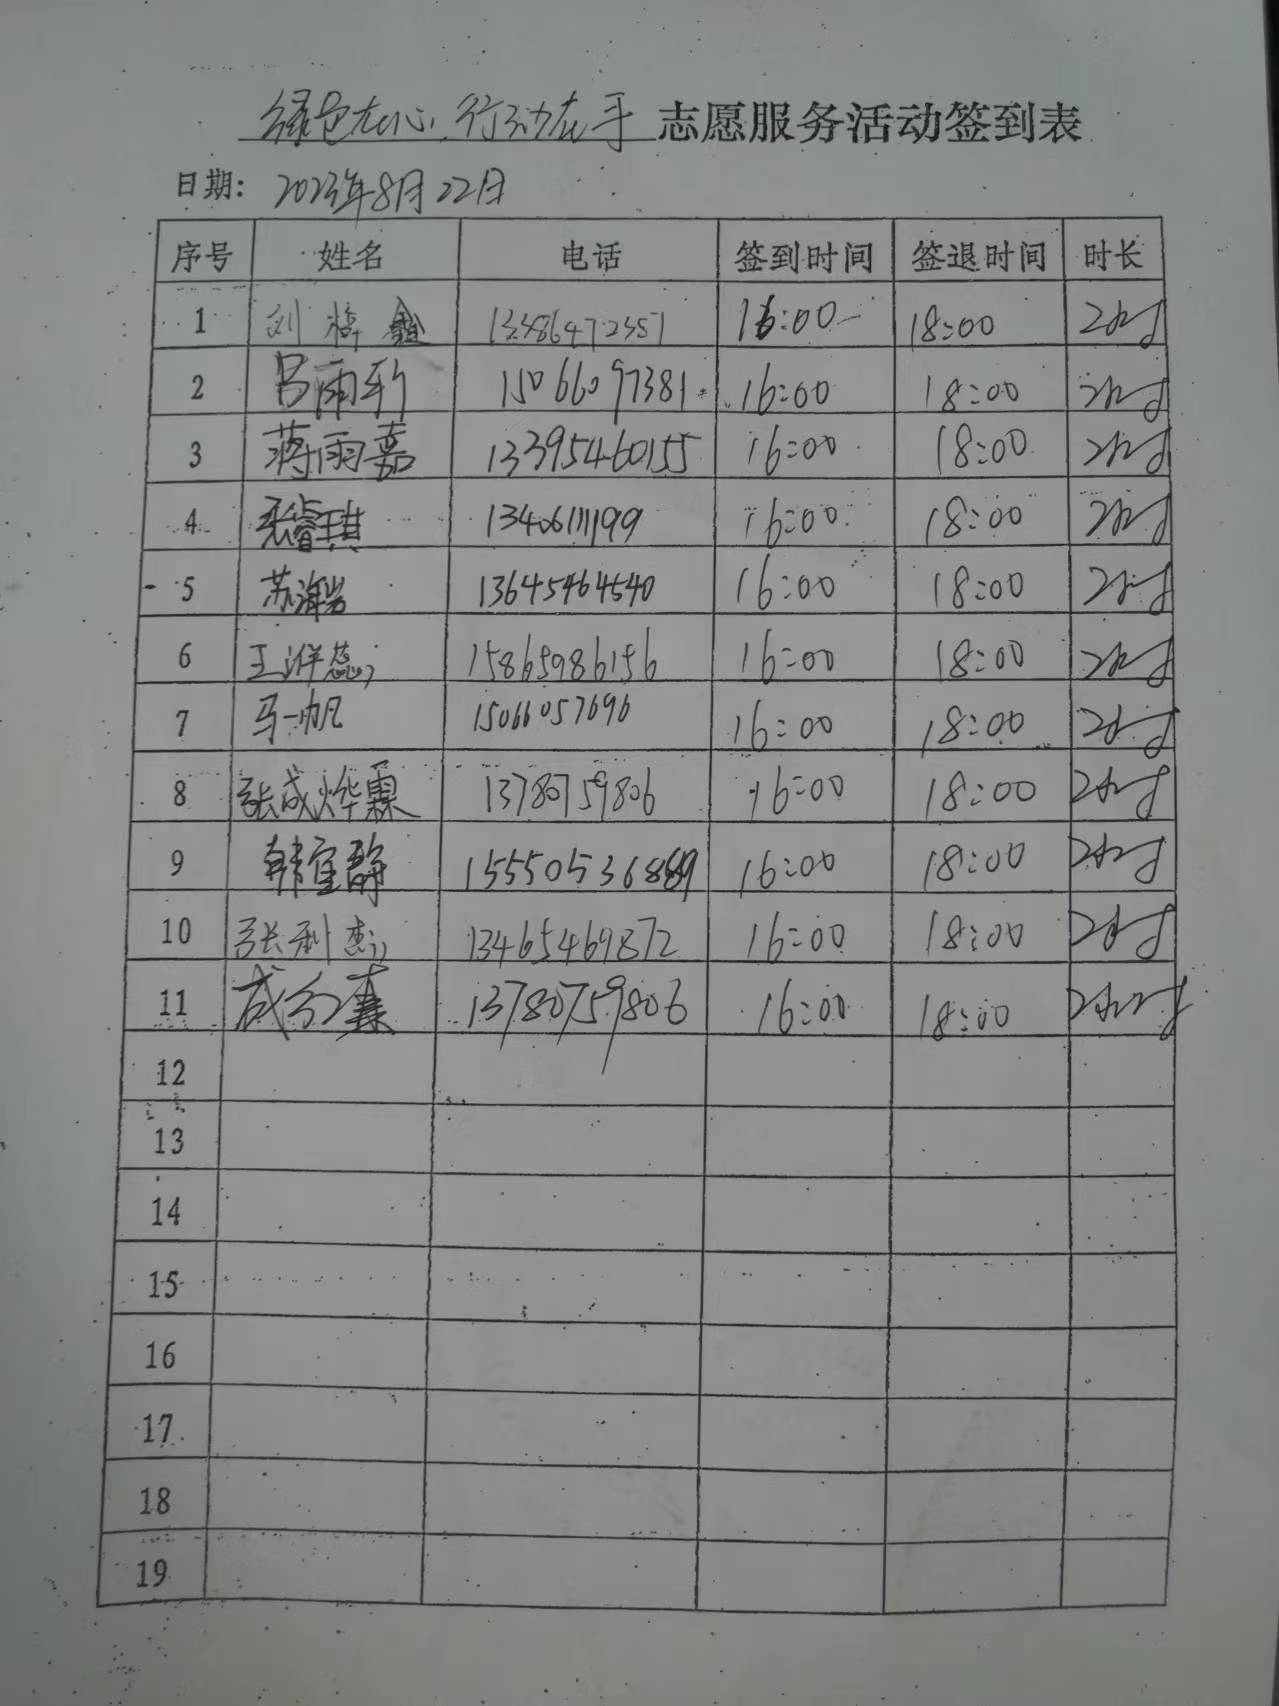 绿色在心 行动在手 志愿服务活动签到表
日期: 2023年8月22日
序号 姓名 电话 签到时间 签退时间 时长
1 刘 鑫 13386472357 16:00 18:00 2小时
2 吕雨轩 15066097381 16:00 18:00 2小时
3 蒋雨嘉 13395460155 16:00 18:00 2小时
4 张睿琪 13406111199 16:00 18:00 2小时
5 苏海岩 13645464540 16:00 18:00 2小时
6 王洋蕊 15865986156 16:00 18:00 2小时
7 马一帆 15066057696 16:00 18:00 2小时
8 张成烨霖 13780759806 16:00 18:00 2小时
9 韩宜静 16:00 18:00 2小时
10 张利杰 13465469872 16:00 18:00 2小时
11 成 13780759806 16:00 18:00 2小时
12
13
14
15
16
17
18
19